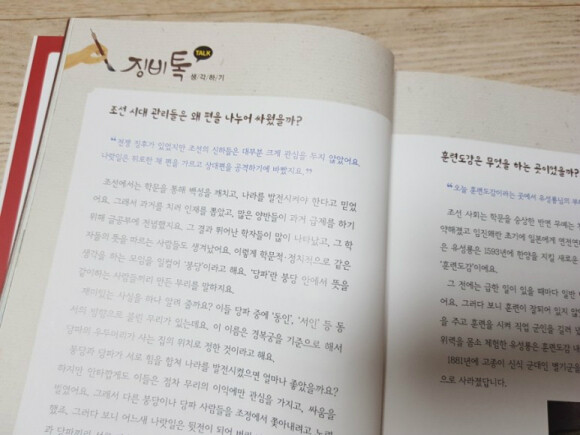 징비톡
TALK
생/각/하/기
조선 시대 관리들은 왜 편을 나누어 싸웠을까?
"전쟁 징후가 있었지만 조선의 신하들은 대부분 크게 관심을 두지 않았어요.
나랏일은 뒤로한 채 편을 가르고 상대편을 공격하기에 바빴지요."
조선에서는 학문을 통해 백성을 깨치고, 나라를 발전시켜야 한다고 믿었
어요. 그래서 과거를 치러 인재를 뽑았고, 많은 양반들이 과거 급제를 하기
위해 글공부에 전념했지요. 그 결과 뛰어난 학자들이 많이 나타났고, 그 학
자들의 뜻을 따르는 사람들도 생겨났어요. 이렇게 학문적·정치적으로 같은
생각을 하는 모임을 일컬어 '붕당'이라고 해요. '당파'란 붕당 안에서 뜻을
같이하는 사람들끼리 만든 무리를 말하지요.
재미있는 사실을 하나 알려 줄까요? 이들 당파 중에 '동인', '서인' 등 동
서의 방향으로 불린 무리가 있는데요. 이 이름은 경복궁을 기준으로 해서
당파의 우두머리가 사는 집의 위치로 정한 것이라고 해요.
붕당과 당파가 서로 힘을 합쳐 나라를 발전시켰으면 얼마나 좋았을까요?
하지만 안타깝게도 이들은 점차 무리의 이익에만 관심을 가지고, 싸움을
벌였어요. 그래서 다른 붕당이나 당파 사람들을 조정에서 쫓아내려고 노력
했죠. 그러다 보니 어느새 나랏일은 뒷전이 되어
훈련도감은 무엇을 하는 곳이었을까?
"오늘 훈련도감이라는 곳에서 유성룡님의
조선 사회는 학문을 숭상한 반면 무예는
약해졌고 임진왜란 초기에 일본에게 연전연
은 유성룡은 1593년에 한양을 지킬 새로운
'훈련도감'이에요.
그 전에는 급한 일이 있을 때마다 일반
어요. 그러다 보니 훈련이 잘되어 있지 않
을 주고 훈련을 시켜 직업 군인을 길러
위력을 몸소 체험한 유성룡은 훈련도감 내
1881년에 고종이 신식 군대인 별기군을
으로 사라졌답니다.